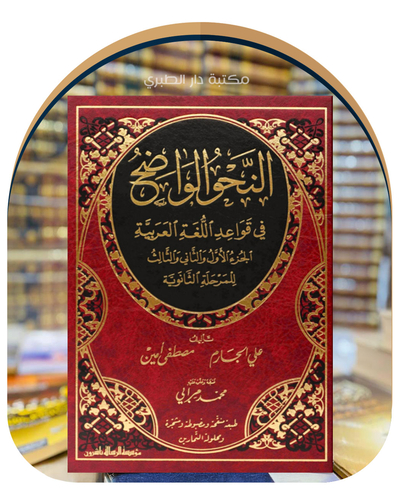 مكتبة دار الطبري
النحو الواضح
في قواعد اللغة العربية
الجزء الأول والثاني والثالث
للمرحلة الثانوية
تأليف
علي الجارم مصطفى أمين
محمد صرابي
طبعة منقحة ومضبوطة ومخرجة
ومحلولة التمارين
مؤسسة الرسالة ناشرون